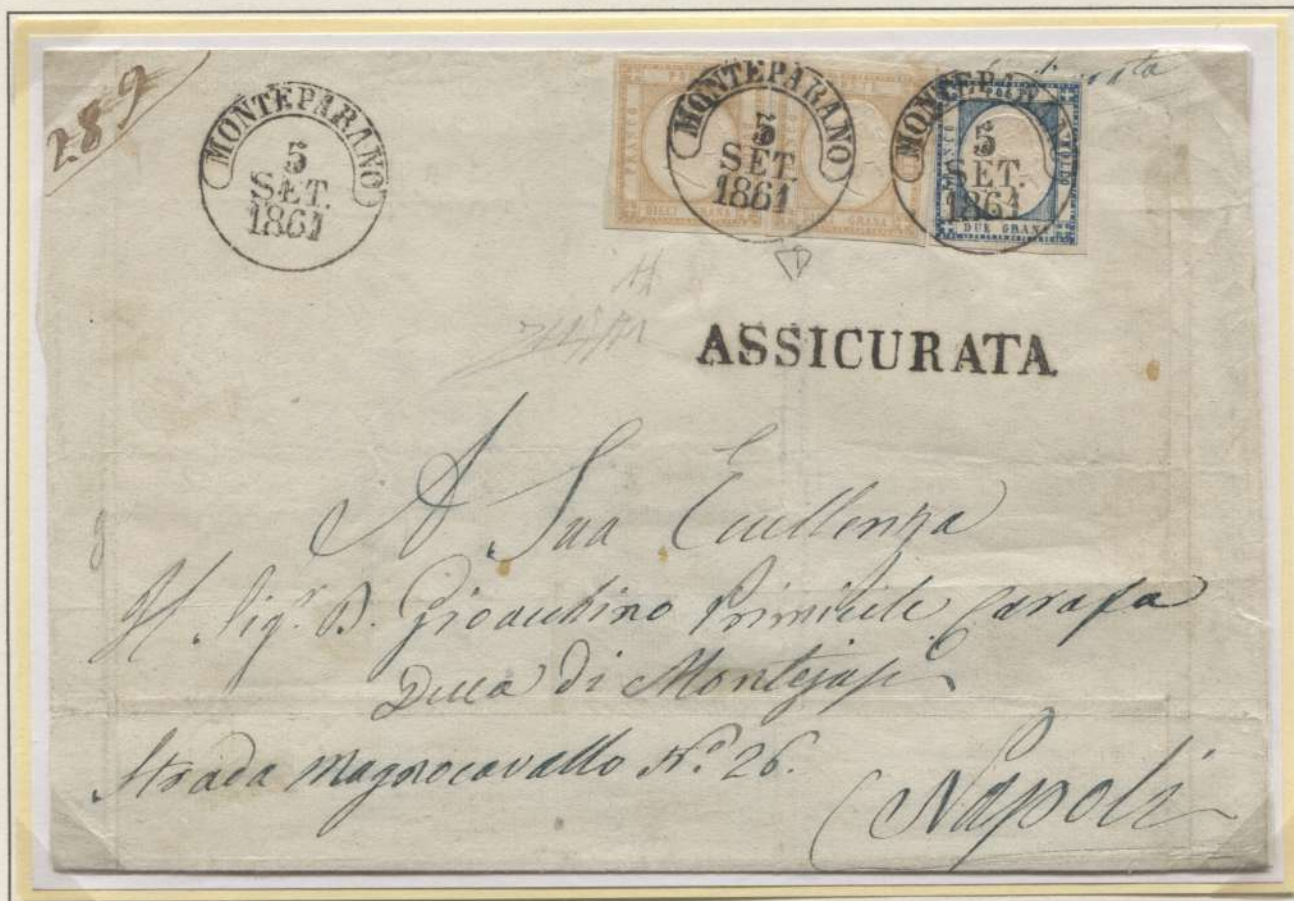 289
MONTEPARANO
5
SET.
1861
MONTEPARANO
5
SET.
1861
MONTEPARANO
5
SET.
1861
FRANCO
DIECI GRANA
GRANA
FRANCO
DUE GRANA
ASSICURATA
A Sua Eccellenza
Il Sig.r D. Gioacchino Primicile Carafa
Duca di Montejasi
Strada Magnocavallo N.o 26.
Napoli